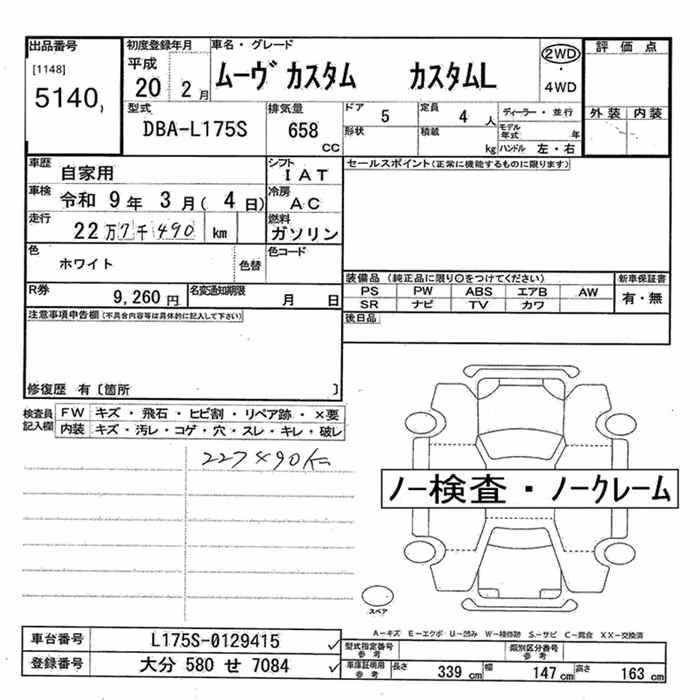 出品番号
[1148]
5140
初度登録年月
平成
20 2月
車名・グレード
ムーヴ カスタム カスタムL
2WD
・
4WD
評価点
外装 内装
型式
DBA-L175S
排気量
658
CC
ドア
5
定員
4 人
形状
積載
kg
ディーラー・並行
モデル
年式 年
ハンドル 左・右
車歴
自家用
シフト
IAT
セールスポイント(正常に機能するものに限ります)
車検
令和 9年 3月( 4日)
冷房
AC
走行
22万7千490 km
燃料
ガソリン
色
ホワイト
色替
色コード
装備品(純正品に限り○をつけてください)
PS PW ABS エアB AW
SR ナビ TV カワ
新車保証書
有・無
R券
9,260円
名変通知期限
月 日
後日品
注意事項申告欄(不具合内容等は具体的に記入して下さい)
修復歴 有〔箇所 〕
検査員
記入欄
FW キズ・飛石・ヒビ割・リペア跡・×要
内装 キズ・汚レ・コゲ・穴・スレ・キレ・破レ
227490Km
ノー検査・ノークレーム
スペア
A-キズ E-エクボ U-凹み W-補修跡 S-サビ C-腐食 XX-交換済
車台番号 L175S-0129415
登録番号 大分 580 せ 7084
型式指定番号
参考
類別区分番号
参考
車庫証明用
参考
長さ 339cm 幅 147cm 高さ 163cm